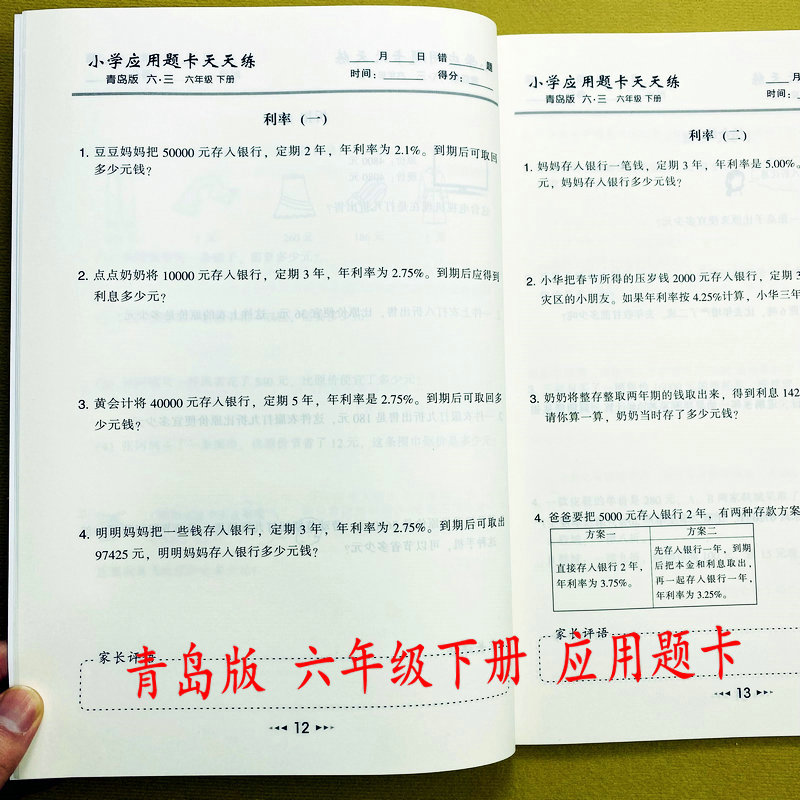 小学应用题卡天天练
青岛版 六·三 六年级 下册
___月___日 错___题
时间：____ 得分：____
利率（一）
1. 豆豆妈妈把 50000 元存入银行，定期 2 年，年利率为 2.1%。到期后可取回
多少元钱？
2. 点点奶奶将 10000 元存入银行，定期 3 年，年利率为 2.75%。到期后应得到
利息多少元？
3. 黄会计将 40000 元存入银行，定期 5 年，年利率是 2.75%。到期后可取回多
少元钱？
4. 明明妈妈把一些钱存入银行，定期 3 年，年利率为 2.75%。到期后可取出
97425 元，明明妈妈存入银行多少元钱？
家长评语
12
小学应用题卡天天练
青岛版 六·三 六年级 下册
___月
时间：
利率（二）
1. 妈妈存入银行一笔钱，定期 3 年，年利率是 5.00%。
元，妈妈存入银行多少元钱？
2. 小华把春节所得的压岁钱 2000 元存入银行，定期 3
灾区的小朋友。如果年利率按 4.25%计算，小华三年
3. 奶奶将整存整取两年期的钱取出来，得到利息 142
请你算一算，奶奶当时存了多少元钱？
4. 爸爸要把 5000 元存入银行 2 年，有两种存款方案
方案一 方案二
直接存入银行 2 年，
年利率为 3.75%。
先存入银行一年，到期
后把本金和利息取出，
再一起存入银行一年，
年利率为 3.25%。
家长评语
13
青岛版 六年级下册 应用题卡